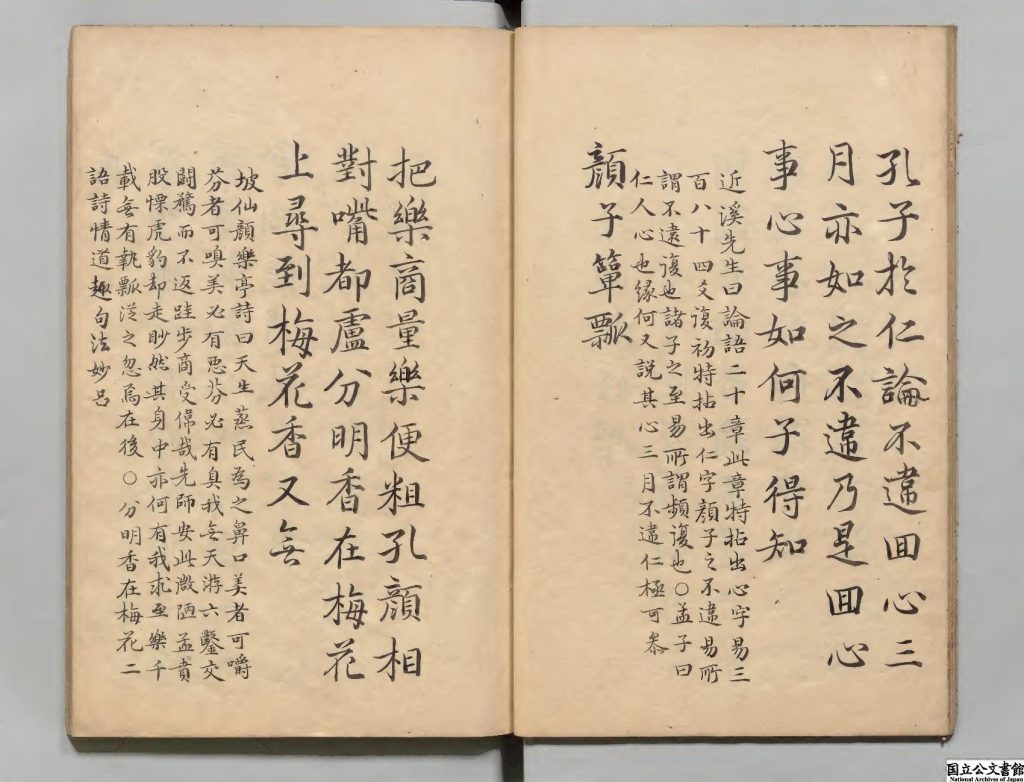 孔子於仁論不違回心三
月亦如之不違乃是回心
事心事如何子得知
近溪先生曰論語二十章此章特拈出心字易三
百八十四爻復初特拈出仁字顏子之不違易所
謂不遠復也諸子之至易所謂頻復也○孟子曰
仁人心也緣何又說其心三月不違仁極可叅
顏子簞瓢
把樂商量樂便粗孔顏相
對嘴都盧分明香在梅花
上尋到梅花香又無
坡仙顏樂亭詩曰天生蒸民為之鼻口美者可嚼
芬者可嗅美必有惡芬必有臭我無天游六鑿交
鬪騖而不返跬步商受偉哉先師安此微陋孟賁
股慄虎豹却走眇然其身中亦何有我求至樂千
載無有執瓢從之忽焉在後○分明香在梅花二
語詩情道趣句法妙品
国立公文書館
National Archives of Japan